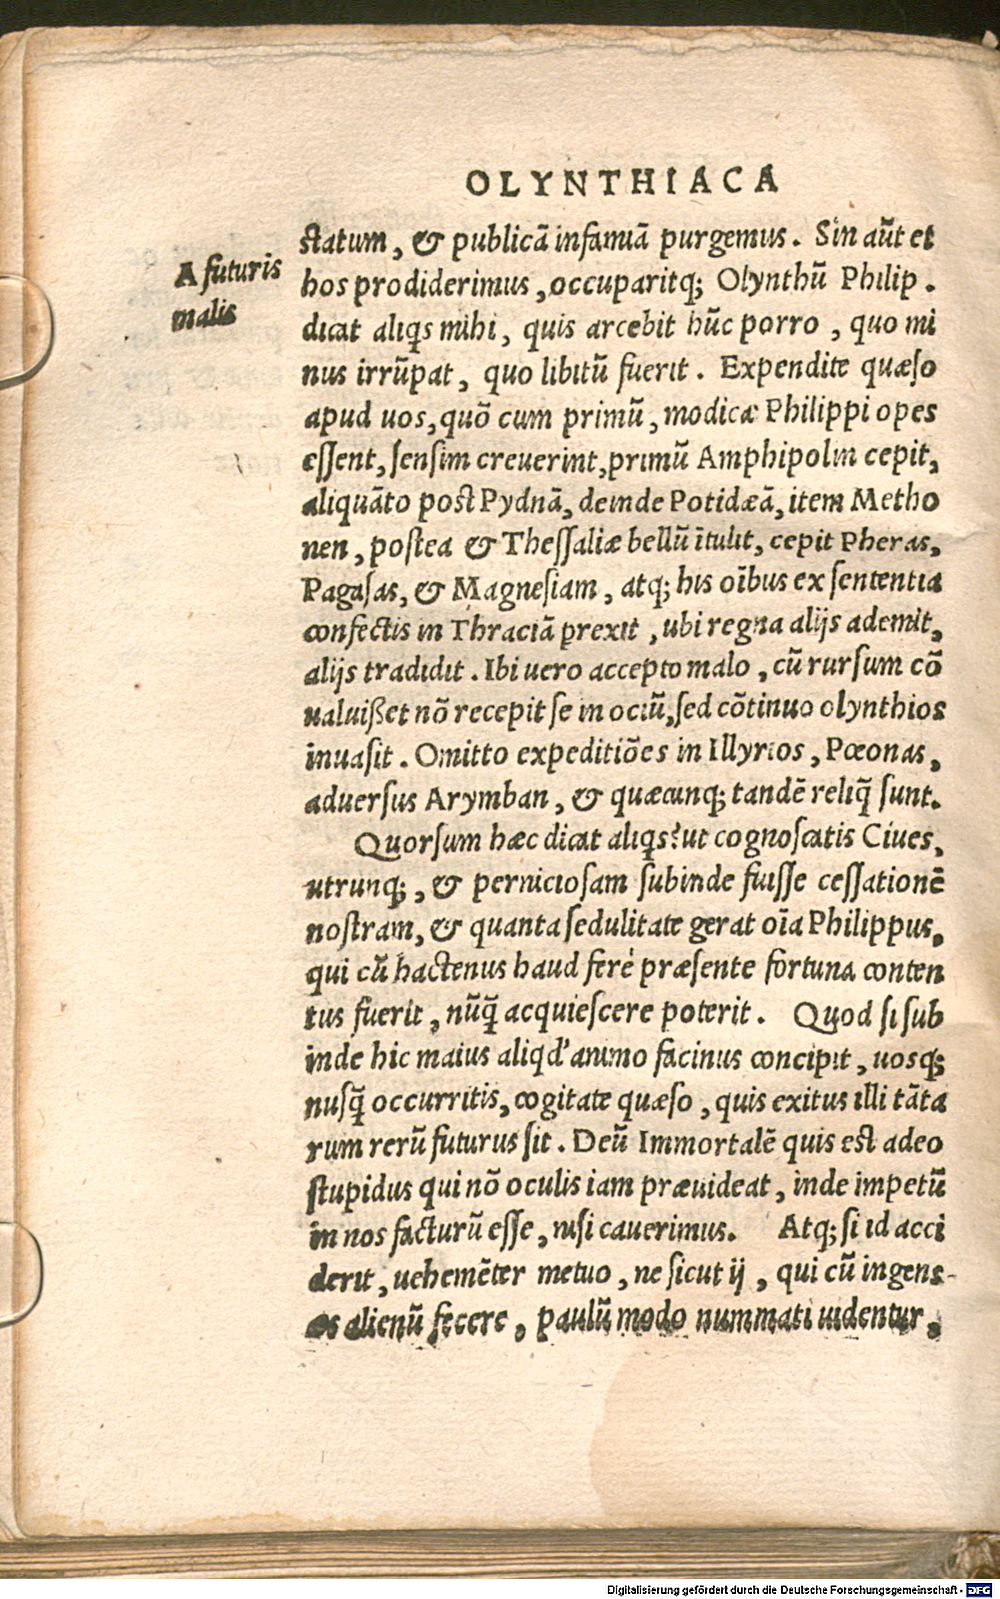 OLYNTHIACA
A futuris
malis
statum, & publicā infamiā purgemus. Sin aūt et
hos prodiderimus, occuparitq; Olynthū Philip.
dicat aliqs mihi, quis arcebit hūc porro, quo mi
nus irrūpat, quo libitū fuerit. Expendite quæso
apud uos, quō cum primū, modicæ Philippi opes
essent, sensim creuerint, primū Amphipolin cepit,
aliquāto post Pydnā, deinde Potidæā, item Metho
nen, postea & Thessaliæ bellū ītulit, cepit Pheras,
Pagasas, & Magnesiam, atq; his oībus ex sententia
confectis in Thraciā prexit, ubi regna alijs ademit,
alijs tradidit. Ibi uero accepto malo, cū rursum cō
ualuißet nō recepit se in ociū, sed cōtinuo olynthios
inuasit. Omitto expeditiōes in Illyrios, Pœonas,
aduersus Arymban, & quæcunq; tandē reliq̃ sunt.
Quorsum hæc dicat aliqs? ut cognoscatis Ciues,
utrunq;, & perniciosam subinde fuisse cessationē
nostram, & quanta sedulitate gerat oīa Philippus,
qui cū hactenus haud ferè præsente fortuna conten
tus fuerit, nūq̃ acquiescere poterit. Quod si sub
inde hic maius aliqd' animo facinus concipit, uosq;
nusq̃ occurritis, cogitate quæso, quis exitus illi tāta
rum rerū futurus sit. Deū Immortalē quis est adeo
stupidus qui nō oculis iam præuideat, inde impetū
in nos facturū esse, nisi cauerimus. Atq; si id acci
derit, uehemēter metuo, ne sicut ij, qui cū ingens
æs alienū fecere, paulū modo nummati uidentur,
Digitalisierung gefördert durch die Deutsche Forschungsgemeinschaft - DFG